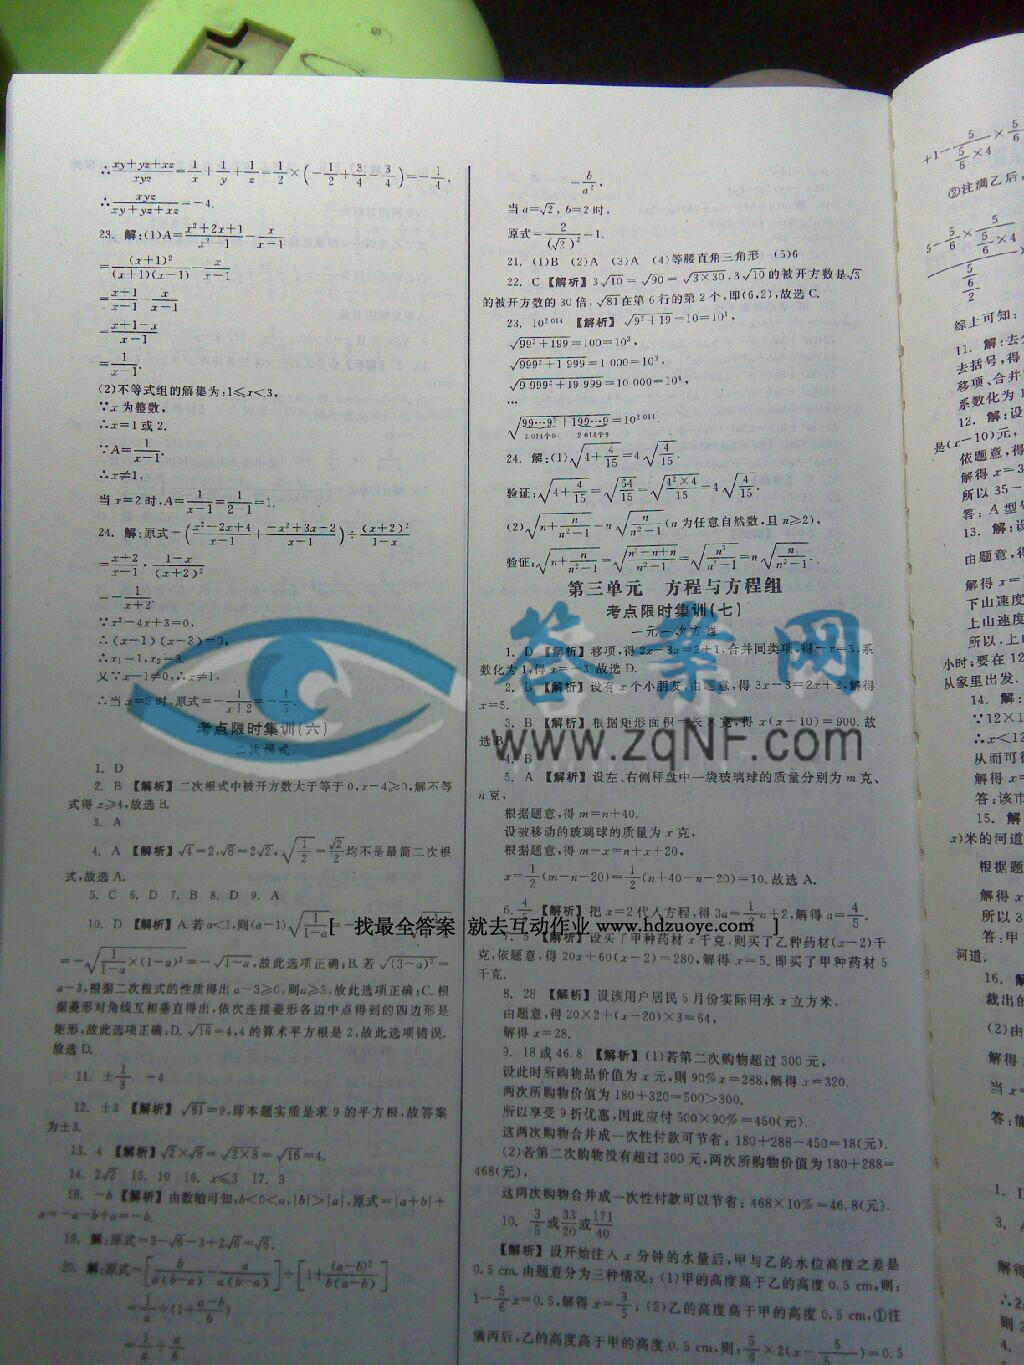 ∴(xy+yz+xz)/(xyz)=1/x+1/y+1/z=1/2×(-1/2+3/4-3/4)=-1/4,
∴xyz/(xy+yz+xz)=-4.
23. 解:(1)A=(x²+2x+1)/(x²-1)-x/(x-1)
=(x+1)²/((x+1)(x-1))-x/(x-1)
=(x+1)/(x-1)-x/(x-1)
=(x+1-x)/(x-1)
=1/(x-1).
(2)不等式组的解集为:1≤x<3,
∵x为整数,
∴x=1或2.
∵A=1/(x-1).
∴x≠1,
当x=2时,A=1/(x-1)=1/(2-1)=1.
24. 解:原式=((x²-2x+4)/(x-1)+(-x²+3x-2)/(x-1))÷(x+2)²/(1-x)
=(x+2)/(x-1)·(1-x)/(x+2)²
=-1/(x+2).
∵x²-4x+3=0,
∴(x-1)(x-3)=0,
∴x₁=1,x₂=3.
又∵x-1≠0,∴x≠1,
∴当x=3时,原式=-1/(x+2)=-1/5.
考点限时集训(六)
二次根式
1. D
2. B 【解析】二次根式中被开方数大于等于0,x-4≥0,解不等
式得x≥4,故选B.
3. A
4. A 【解析】√4=2,√8=2√2,√(1/2)=√2/2均不是最简二次根
式,故选A.
5. C 6. D 7. B 8. D 9. A
10. D 【解析】A.若a<1,则(a-1)√(1/(1-a))
=-√(1/(1-a)×(1-a)²)=-√(1-a),故此选项正确;B.若√(3-a)²=
a-3,根据二次根式的性质得出a-3≥0,则a≥3,故此选项正确;C.根
据菱形对角线互相垂直得出,依次连接菱形各边中点得到的四边形是
矩形,故此选项正确;D.√16=4,4的算术平方根是2,故此选项错误.
故选D.
11. ±1/3 -4
12. ±3 【解析】√81=9,即本题实质是求9的平方根,故答案
为±3.
13. 4 【解析】√2×√8=√(2×8)=√16=4.
14. 2√2 15. 10 16. x≤3 17. 3
18. -b 【解析】由数轴可知:b<0<a,|b|>|a|,原式=|a+b|+
a=-a-b+a=-b.
19. 解:原式=3-√6-3+2√6=√6.
20. 解:原式=[b/(a(b-a))-a/(a(b-a))]÷[1+(a-b)²/(b(a-b))]
=1/a÷(1+(a-b)/b)
=1/a÷a/b
=b/a²,
当a=√2,b=2时,
原式=2/(√2)²=1.
21. (1)B (2)A (3)A (4)等腰直角三角形 (5)6
22. C 【解析】3√10=√90=√(3×30).3√10的被开方数是√3
的被开方数的30倍,√81在第6行的第2个,即(6,2),故选C.
23. 10²⁰¹⁴ 【解析】√(9²+19)=10=10¹,
√(99²+199)=100=10²,
√(999²+1 999)=1 000=10³,
√(9 999²+19 999)=10 000=10⁴,
…
√(99…9²+199…9)=10²⁰¹⁴
2 014个9 2 014个9
24. 解:(1)√(4+4/15)=4√(4/15).
验证:√(4+4/15)=√(64/15)=√(4²×4/15)=4√(4/15).
(2)√(n+n/(n²-1))=n√(n/(n²-1))(n为任意自然数,且n≥2),
验证:√(n+n/(n²-1))=√((n³-n+n)/(n²-1))=√(n³/(n²-1))=n√(n/(n²-1)).
第三单元 方程与方程组
考点限时集训(七)
一元一次方程
1. D 【解析】移项,得2x-3x=2+1,合并同类项,得-x=3,系
数化为1,得x=-3.故选D.
2. B 【解析】设有x个小朋友,由题意,得3x-3=2x+2,解得
x=5.
3. B 【解析】根据矩形面积=长×宽,得x(x+10)=900.故
选B.
4. B
5. A 【解析】设左、右侧秤盘中一袋玻璃球的质量分别为m克、
n克,
根据题意,得m=n+40.
设被移动的玻璃球的质量为x克,
根据题意,得m-x=n+x+20,
x=1/2(m-n-20)=1/2(n+40-n-20)=10.故选A.
6. 4/5 【解析】把x=2代入方程,得3a=1/2a+2,解得a=4/5.
7. 5 【解析】设买了甲种药材x千克,则买了乙种药材(x-2)千
克,依题意,得20x+60(x-2)=280,解得x=5.即买了甲种药材5
千克.
8. 28 【解析】设该用户居民5月份实际用水x立方米,
由题意,得20×2+(x-20)×3=64,
解得x=28.
9. 18或46.8 【解析】(1)若第二次购物超过300元,
设此时所购物品价值为x元,则90%x=288,解得x=320.
两次所购物价值为180+320=500>300.
所以享受9折优惠,因此应付500×90%=450(元).
这两次购物合并成一次性付款可节省:180+288-450=18(元).
(2)若第二次购物没有超过300元,两次所购物价值为180+288=
468(元),
这两次购物合并成一次性付款可以节省:468×10%=46.8(元).
10. 3/5或33/20或171/40
【解析】设开始注入x分钟的水量后,甲与乙的水位高度之差是
0.5 cm.由题意分为三种情况:(1)甲的高度高于乙的高度0.5 cm,则:
1-5/6x=0.5,解得x=3/5;(2)乙的高度高于甲的高度0.5 cm,①注
满丙后,乙的高度高于甲的高度0.5 cm,则:5/6×2(x-
)=0.5
②注满乙后,
综上可知:
11. 解:去
去括号,得
移项、合并
系数化为1
12. 解:设
是(x-10)元,
依题意,得
解得x=3
所以35-
答:A型
13. 解:设
由题意,得
解得x=
下山速度
上山速度
所以,上
小时;要在12
从家里出发.
14. 解
∵12×1
∴x<12
从而可
解得x=
答:该市
15. 解
x)米的河道
根据题
解得x
所以3
答:甲
河道.
16. 解
裁出的
(2)由
解得
当x=
答:能
1. 1
3.
解得
∴2
则2
4.
答案网
www.zqNF.com
[ 找最全答案 就去互动作业 www.hdzuoye.com ]